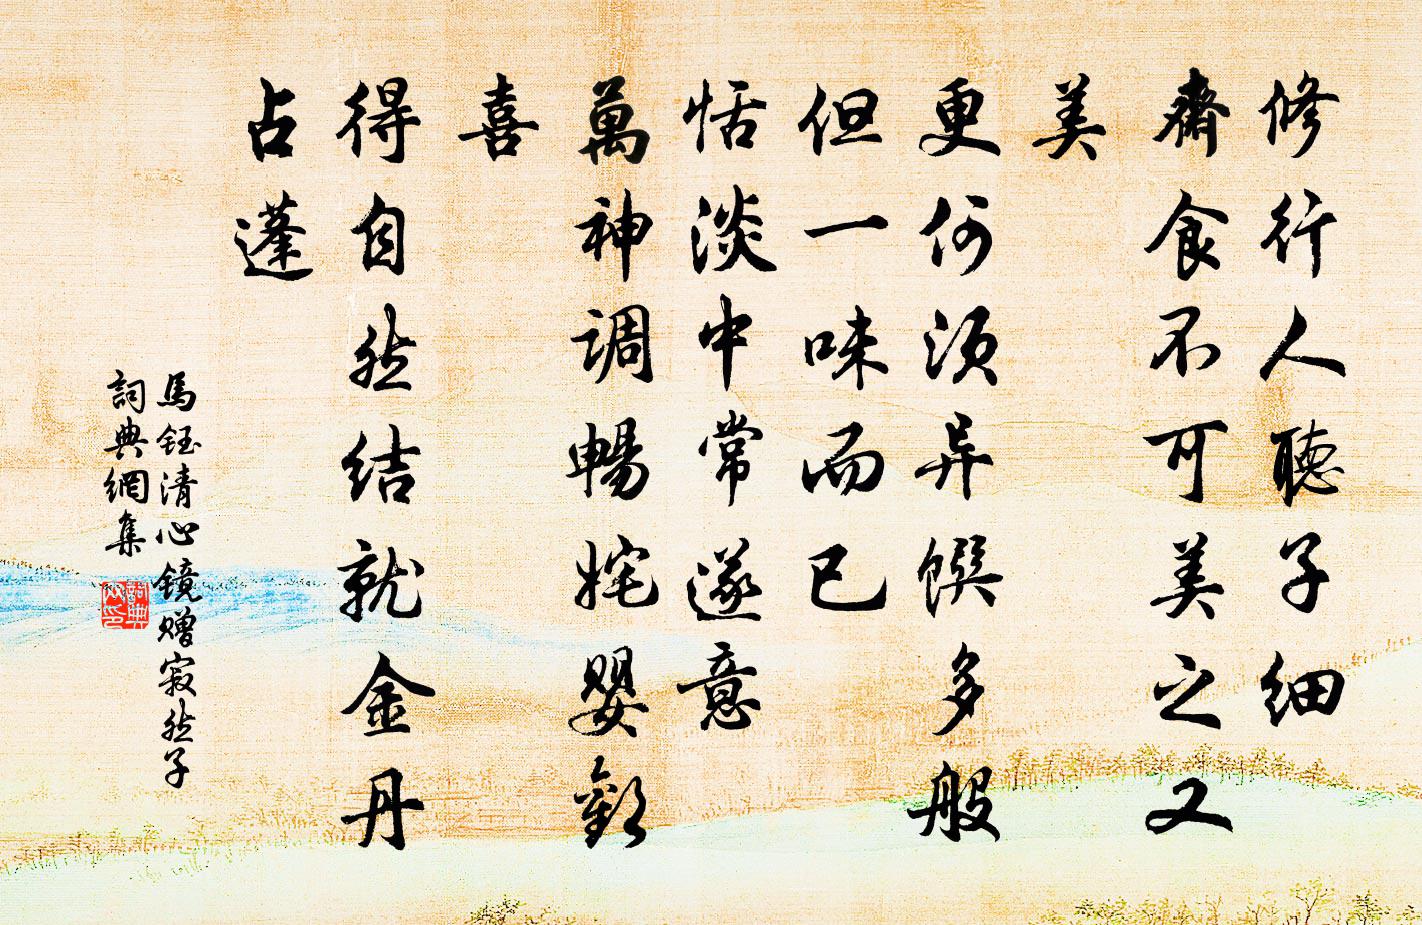 修行人聽子細
齋食不可美之又
美
更何須异饌多般
但一味而已
恬淡中常遂意
萬神調暢姹嬰歡
喜
得自然结就金丹
占蓬
馬钰清心镜赠寂然子
詞典網集